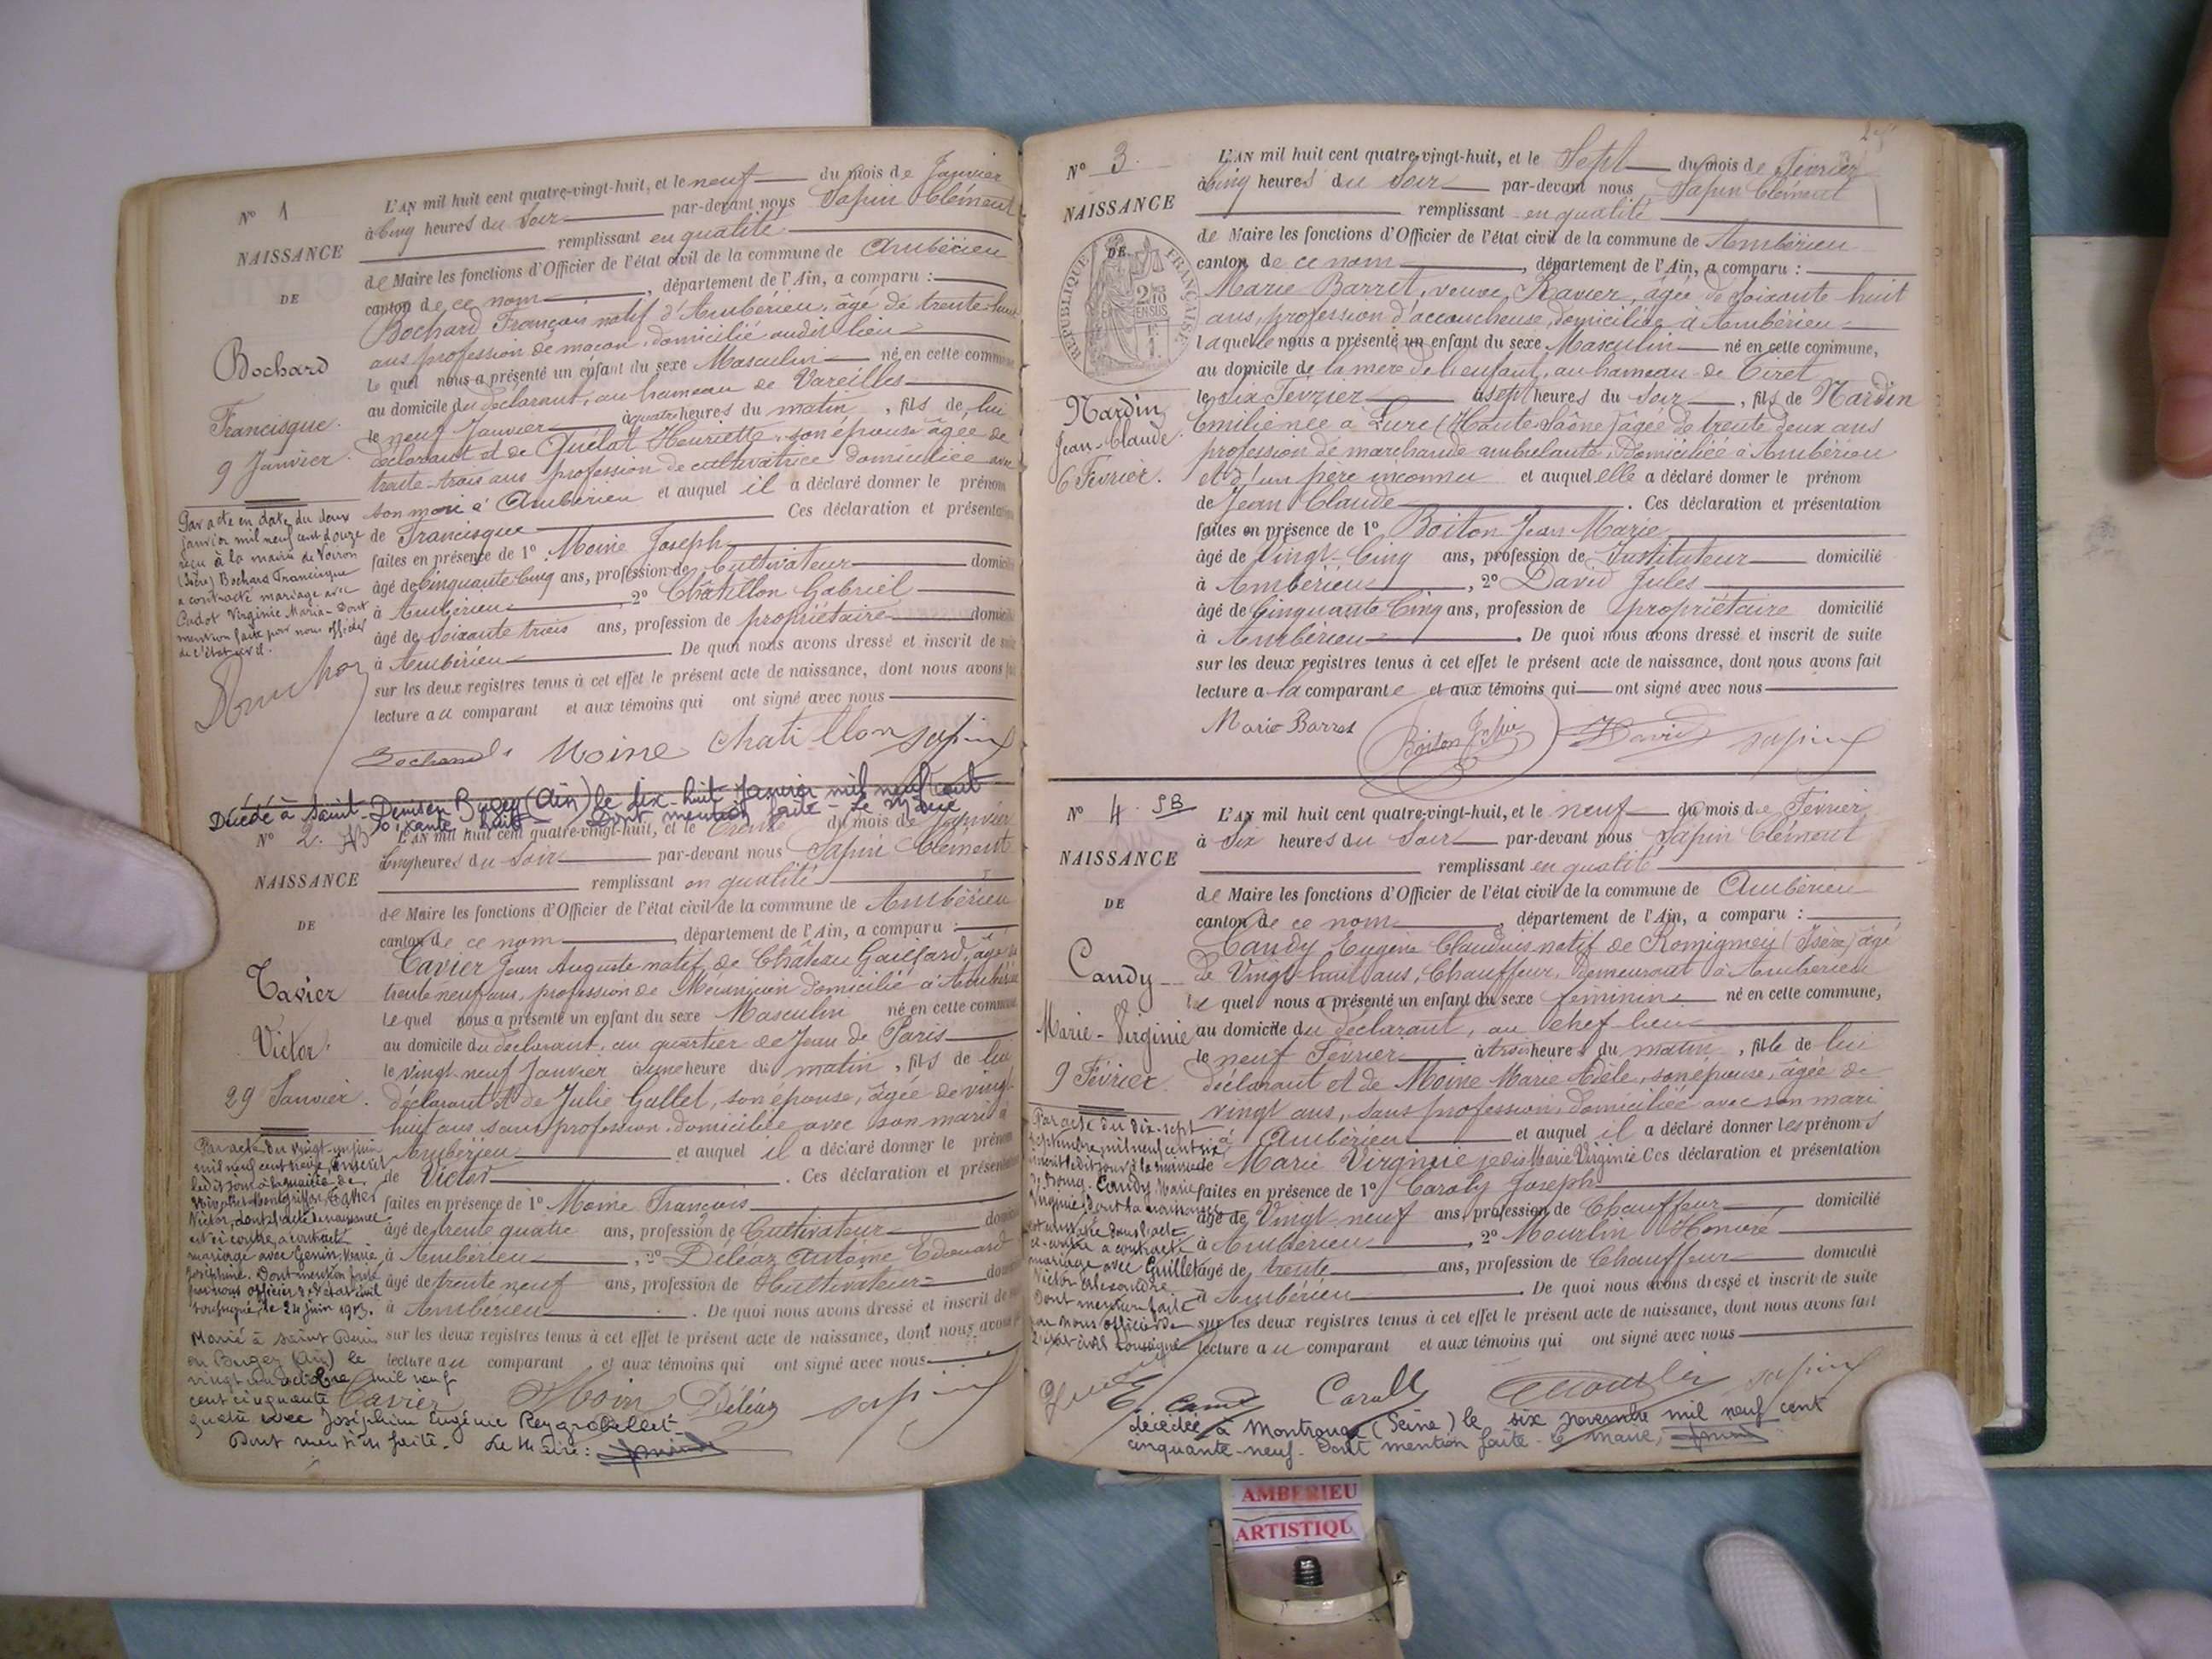 N° 1
NAISSANCE
DE
Bochard
Francisque.
9 Janvier.
Par acte en date du deux
janvier mil neuf cent douze
reçu à la mairie de Voiron
(Isère) Bochard Francisque
a contracté mariage avec
Cadot Virginie Maria - Dont
mention faite par nous officier
de l'état civil.
L'AN mil huit cent quatre-vingt-huit, et le neuf du mois de Janvier
à Cinq heures du Soir par-devant nous Sapin Clément
remplissant en qualité
de Maire les fonctions d'Officier de l'état civil de la commune de Ambérieu
canton de ce nom, département de l'Ain, a comparu :
Bochard François natif d'Ambérieu, âgé de trente-huit
ans profession de maçon, domicilié audit lieu
Le quel nous a présenté un enfant du sexe Masculin né en cette commune
au domicile du déclarant, au hameau de Vareilles
le neuf Janvier à quatre heures du matin, fils de lui
déclarant et de Quélat Henriette, son épouse âgée de
trente-trois ans profession de cultivatrice domiciliée avec
son mari à Ambérieu et auquel il a déclaré donner le prénom
de Francisque Ces déclaration et présentation
faites en présence de 1° Moine Joseph
âgé de Cinquante Cinq ans, profession de Cultivateur domicilié
à Ambérieu, 2° Châtillon Gabriel
âgé de Soixante trois ans, profession de propriétaire domicilié
à Ambérieu De quoi nous avons dressé et inscrit de suite
sur les deux registres tenus à cet effet le présent acte de naissance, dont nous avons fait
lecture au comparant et aux témoins qui ont signé avec nous
Bochard Moine Chatillon Sapin
Décédé à Saint-Denis en Bugey (Ain) le dix-huit Janvier mil neuf cent
soixante huit - Dont mention faite - Le Maire
N° 2.
NAISSANCE
DE
Tavier
Victor.
29 Janvier.
Par acte du vingt-un juin
mil neuf cent treize, inscrit
ledit jour à la mairie de
Tavier
Victor, dont l'acte de naissance
est ci contre, a contracté
mariage avec Genin
Joséphine. Dont mention faite
par nous officier de l'état civil
soussigné, le 24 juin 1913.
Marié à Saint Denis
en Bugey (Ain) le
vingt un octobre mil neuf
cent cinquante
quatre avec Joséphine Eugénie Reygrobellet
Dont mention faite. Le Maire :
L'AN mil huit cent quatre-vingt-huit, et le trente du mois de Janvier
à Cinq heures du Soir par-devant nous Sapin Clément
remplissant en qualité
de Maire les fonctions d'Officier de l'état civil de la commune de Ambérieu
canton de ce nom, département de l'Ain, a comparu :
Tavier Jean Auguste natif de Château Gaillard, âgé de
trente neuf ans, profession de Mécanicien domicilié à Ambérieu
Le quel nous a présenté un enfant du sexe Masculin né en cette commune
au domicile du déclarant, au quartier de Jean de Paris
le vingt-neuf Janvier à une heure du matin, fils de lui
déclarant et de Julie Gallet, son épouse, âgée de vingt
huit ans sans profession, domiciliée avec son mari à
Ambérieu et auquel il a déclaré donner le prénom
de Victor. Ces déclaration et présentation
faites en présence de 1° Moine François
âgé de trente quatre ans, profession de Cultivateur domicilié
à Ambérieu, 2° Deléaz Antoine Edouard
âgé de trente neuf ans, profession de Cultivateur domicilié
à Ambérieu. De quoi nous avons dressé et inscrit de suite
sur les deux registres tenus à cet effet le présent acte de naissance, dont nous avons fait
lecture au comparant et aux témoins qui ont signé avec nous
Tavier Moine Deléaz Sapin
N° 3.
NAISSANCE
DE
RÉPUBLIQUE FRANÇAISE
2/10 EN SUS
Nardin
Jean-Claude.
6 Février.
L'AN mil huit cent quatre-vingt-huit, et le Sept du mois de Février
à Cinq heures du Soir par-devant nous Sapin Clément
remplissant en qualité
de Maire les fonctions d'Officier de l'état civil de la commune de Ambérieu
canton de ce nom, département de l'Ain, a comparu :
Marie Barret, veuve Ravier, âgée de soixante huit
ans, profession d'accoucheuse, domiciliée à Ambérieu
Laquelle nous a présenté un enfant du sexe Masculin né en cette commune,
au domicile de la mère de l'enfant, au hameau de Tiret
le six Février à sept heures du Soir, fils de Nardin
Emilie née à Lure (Haute Saône) âgée de trente deux ans
profession de marchande ambulante, domiciliée à Ambérieu
et d'un père inconnu et auquel elle a déclaré donner le prénom
de Jean Claude. Ces déclaration et présentation
faites en présence de 1° Boiton Jean Marie
âgé de Vingt-Cinq ans, profession de Instituteur domicilié
à Ambérieu, 2° David Jules
âgé de Cinquante Cinq ans, profession de propriétaire domicilié
à Ambérieu. De quoi nous avons dressé et inscrit de suite
sur les deux registres tenus à cet effet le présent acte de naissance, dont nous avons fait
lecture a la comparante et aux témoins qui ont signé avec nous
Marie Barret Boiton David Sapin
N° 4 SB
NAISSANCE
DE
Candy
Marie-Virginie
9 Février
Par acte du dix-sept
septembre mil neuf cent six
inscrit ledit jour à la mairie de
Bourg. Candy Marie
Virginie, dont la naissance
est inscrite dans l'acte
ci-contre a contracté
mariage avec Guillet
Victor Alexandre.
Dont mention faite
par nous officier de
l'état civil soussigné
L'AN mil huit cent quatre-vingt-huit, et le neuf du mois de Février
à Six heures du Soir par-devant nous Sapin Clément
remplissant en qualité
de Maire les fonctions d'Officier de l'état civil de la commune de Ambérieu
canton de ce nom, département de l'Ain, a comparu :
Candy Eugène Claudius natif de (Isère) âgé
de Vingt-huit ans, Chauffeur, demeurant à Ambérieu
Le quel nous a présenté un enfant du sexe féminin né en cette commune,
au domicile du déclarant, au chef-lieu
le neuf Février à trois heures du matin, fille de lui
déclarant et de Moine Marie Adèle, son épouse, âgée de
vingt ans, sans profession, domiciliée avec son mari
à Ambérieu et auquel il a déclaré donner les prénoms
de Marie Virginie je dis Marie Virginie Ces déclaration et présentation
faites en présence de 1° Caroly Joseph
âgé de Vingt neuf ans, profession de Chauffeur domicilié
à Ambérieu, 2° Mourlin Honoré
âgé de trente ans, profession de Chauffeur domicilié
à Ambérieu. De quoi nous avons dressé et inscrit de suite
sur les deux registres tenus à cet effet le présent acte de naissance, dont nous avons fait
lecture au comparant et aux témoins qui ont signé avec nous
Sapin
décédée à Montrouge (Seine) le six novembre mil neuf cent
cinquante-neuf. Dont mention faite - Le maire,
AMBERIEU
ARTISTIQU